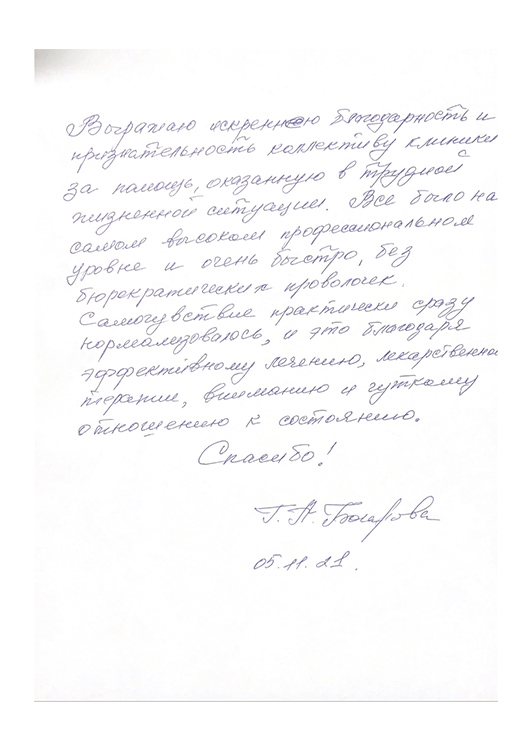 Выражаю искреннюю благодарность и
признательность коллективу клиники
за помощь, оказанную в трудной с
жизненной ситуации. Все было на
самом высоком профессиональном
уровне и очень быстро, без
бюрократических проволочек.
Самочувствие практически сразу
нормализовалось, и это благодаря
эффективному лечению, лекарственной
терапии, вниманию и чуткому
отношению к состоянию.
Спасибо!
Г. А.
05.11.21.